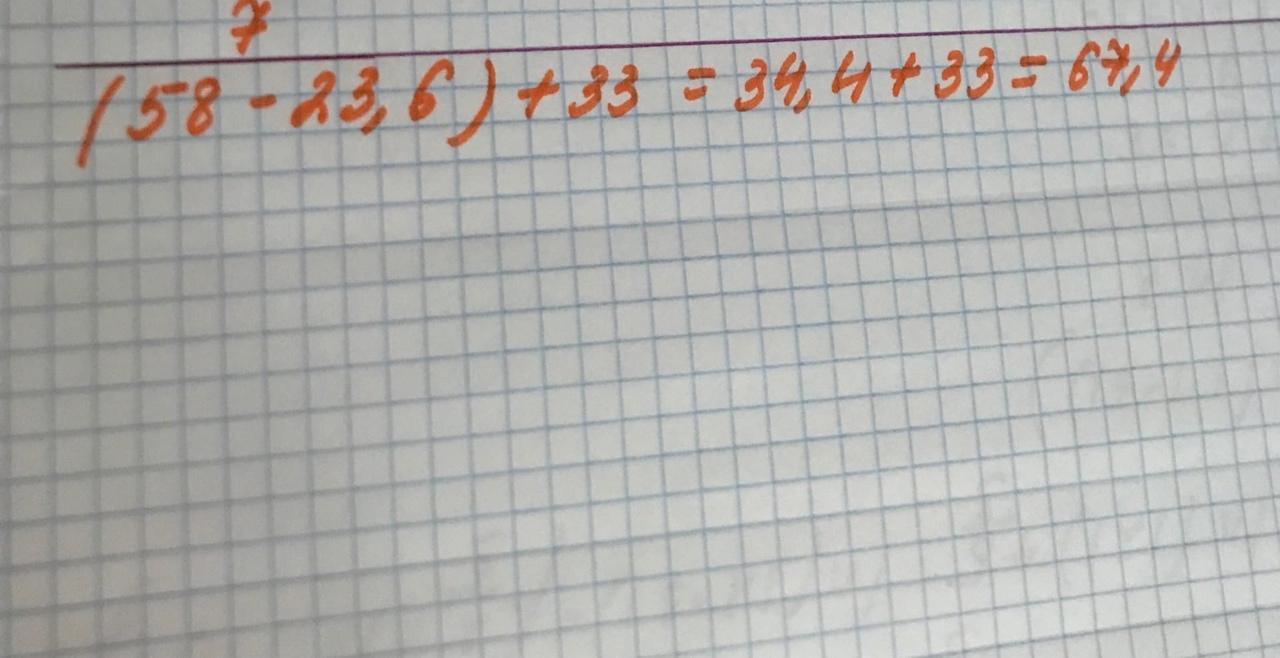 7
(58 - 23,6) + 33 = 34,4 + 33 = 67,4